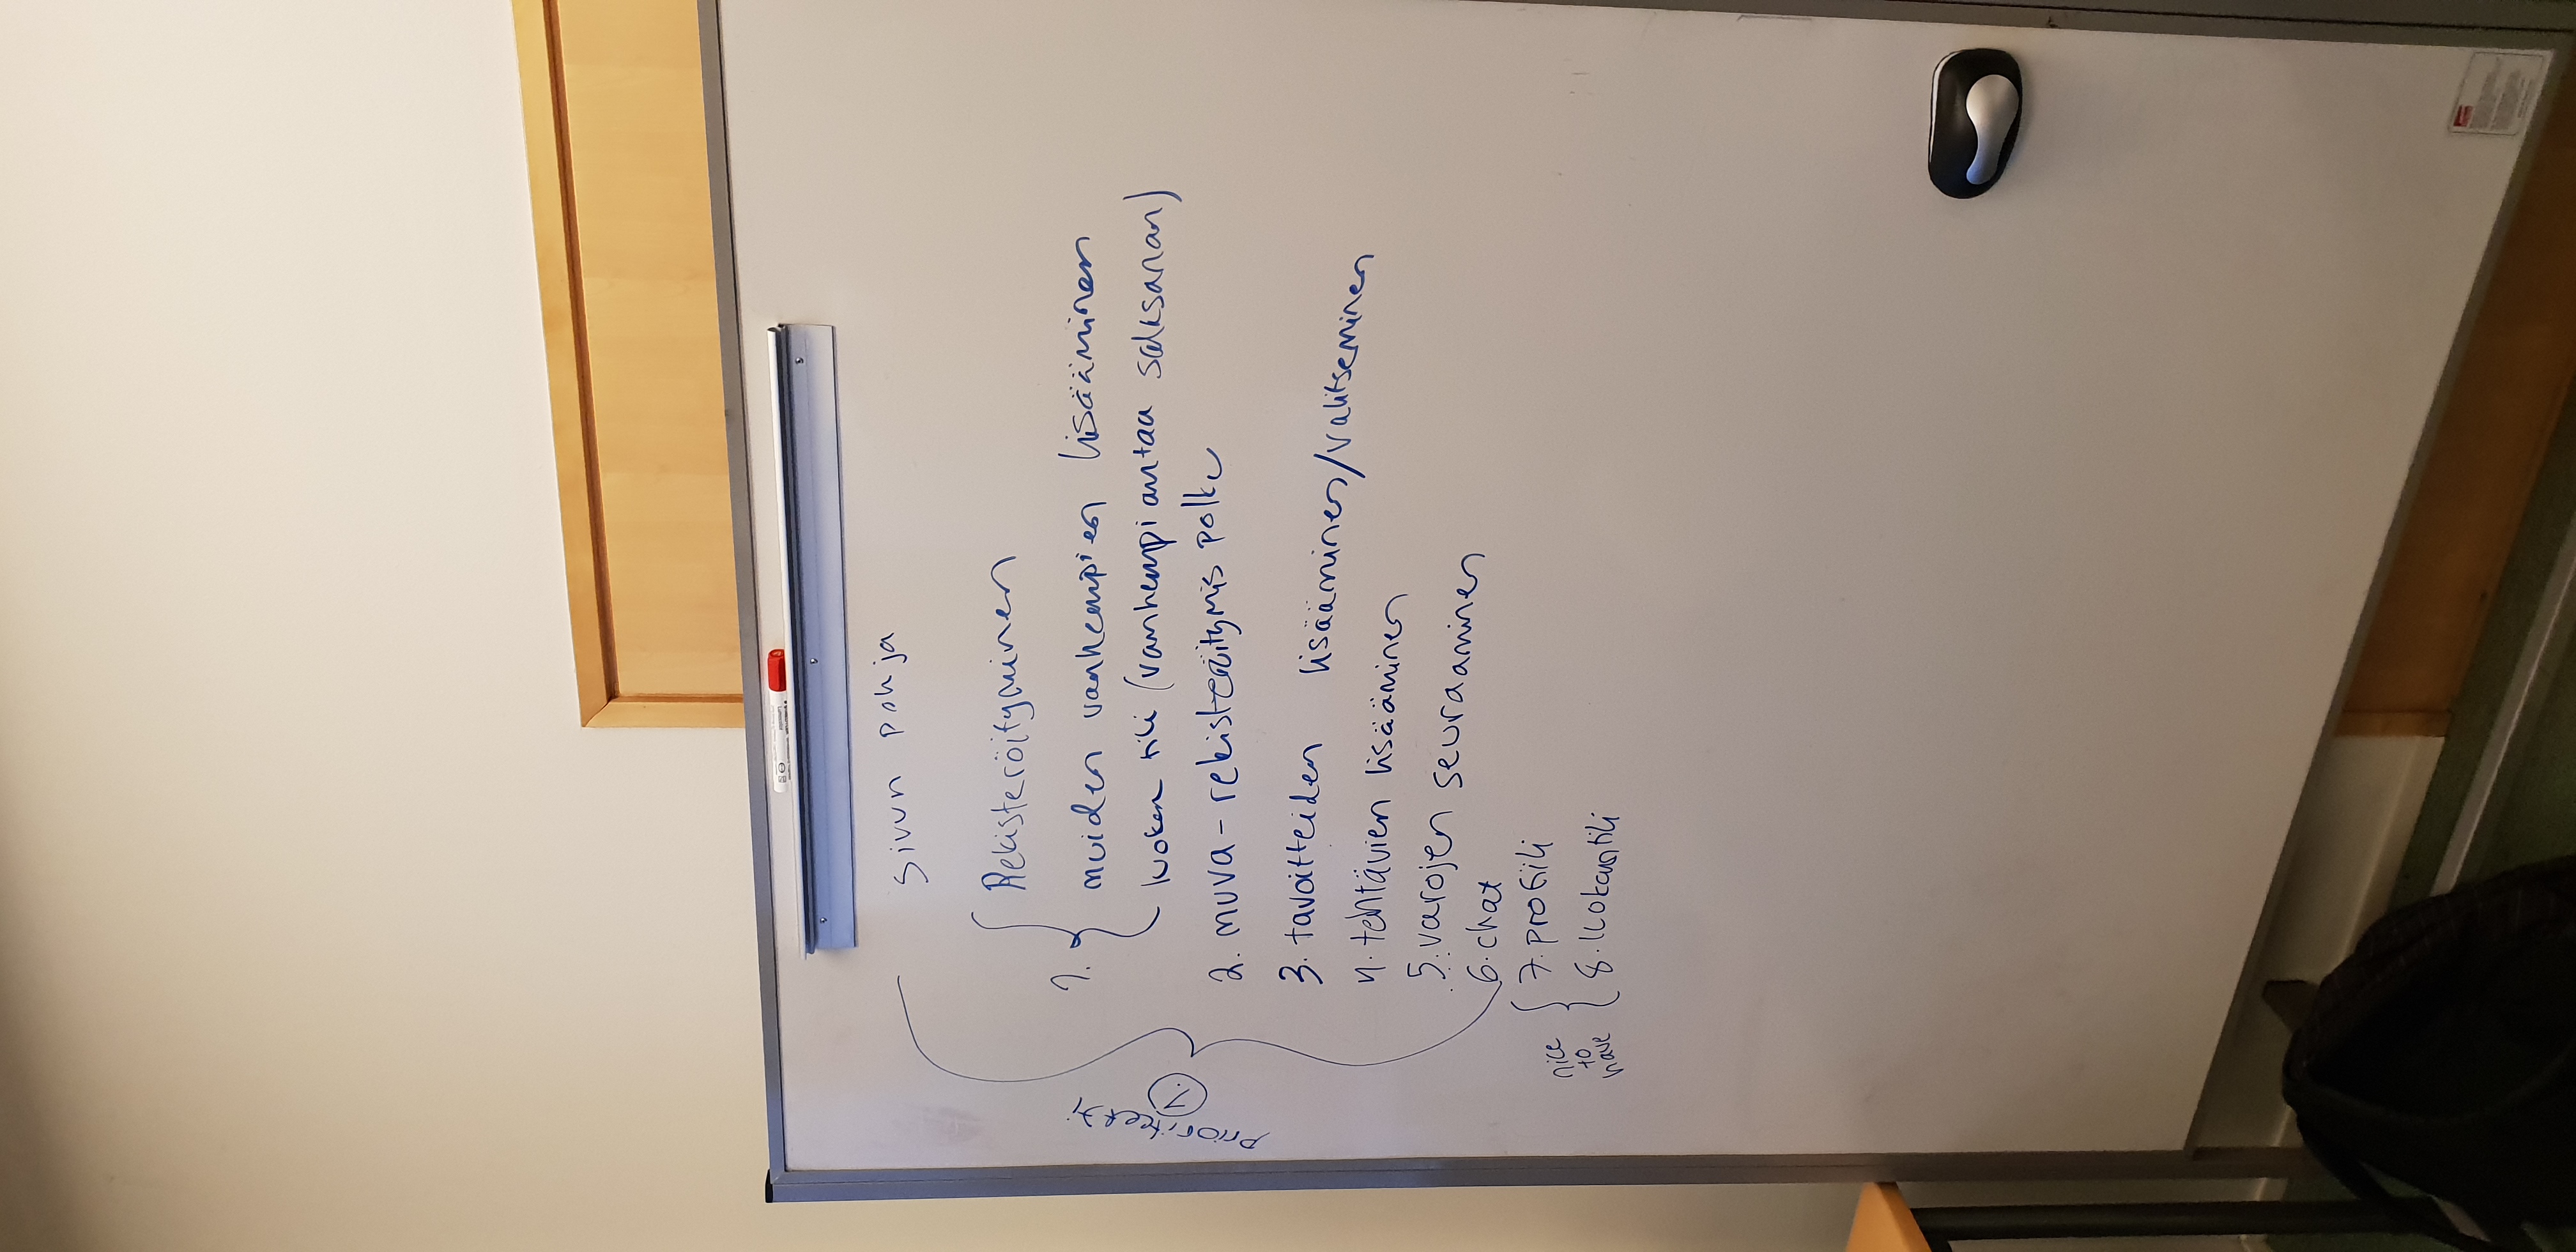 sivun pohja
Rekisteröityminen
1.
muiden vanhempien lisääminen
luokan tili (vanhempi antaa salasanan)
Prioriteetti
1.
2. muva-rekisteröitymis polku
3. tavoitteiden lisääminen/valitseminen
4. tehtävien lisääminen
5. varojen seuraaminen
6. chat
nice
to
have
7. profiili
8. luokan tili